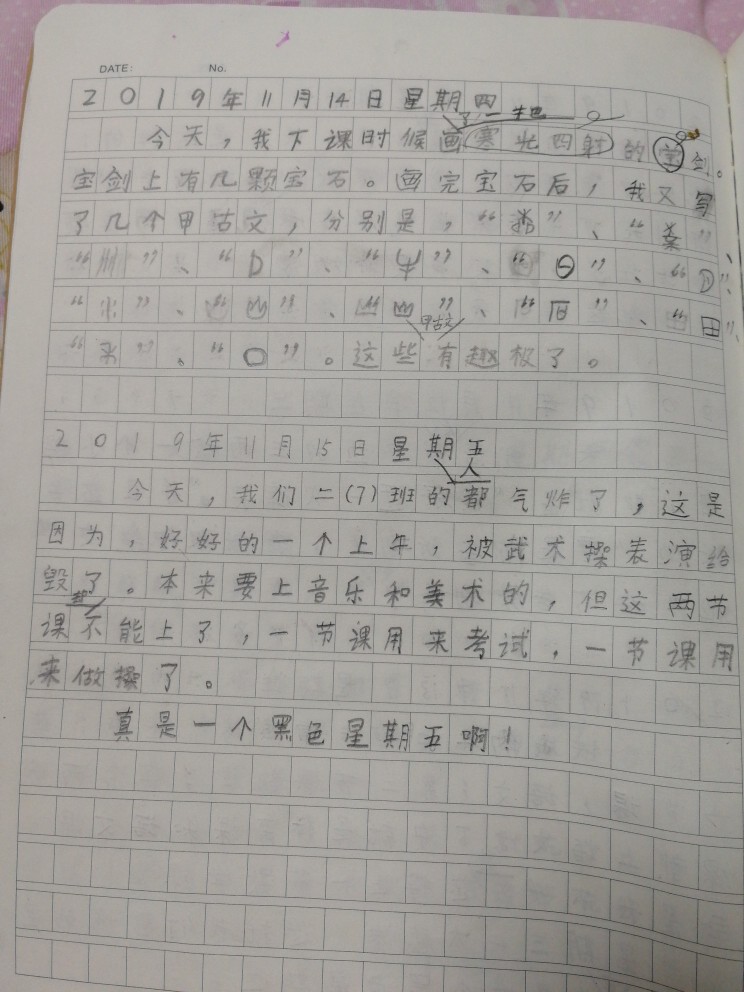 DATE:
No.
2019年11月14日星期四
了一
今天，我下课时候画寒光四射的宝剑。
宝剑上有几颗宝石。画完宝石后，我又写
了几个甲古文，分别是，“”、“桑”、
“川”、“D”、“”、“日”、“”、
“水”、“山”、“”、“”、“田”、
甲古文
“来”。“口”。这些有趣极了。
2019年11月15日星期五
人
今天，我们二(7)班的都气炸了，这是
因为，好好的一个上午，被武术操表演给
毁了。本来要上音乐和美术的，但这两节
课不能上了，一节课用来考试，一节课用
来做操了。
真是一个黑色星期五啊！